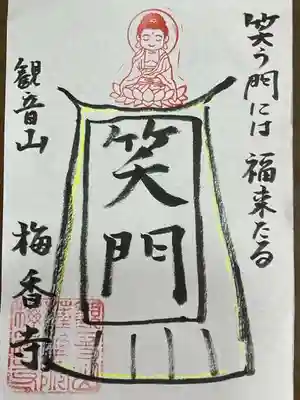 笑う門には 福来たる
笑門
観音山
梅香寺